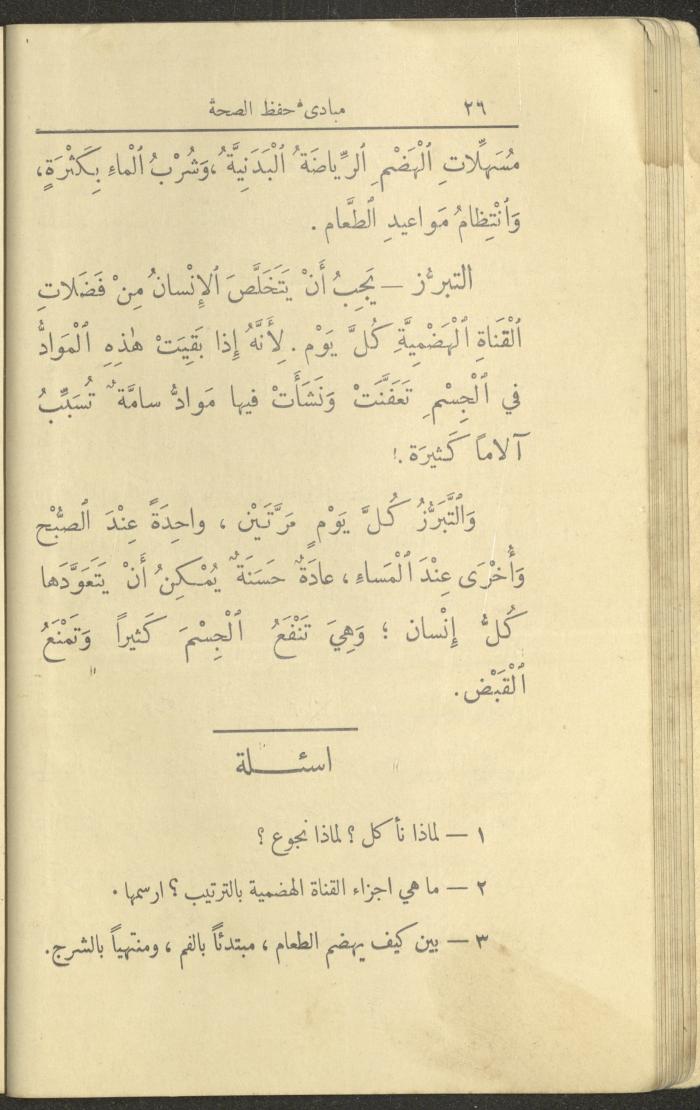 ٢٦ مبادىء حفظ الصحة
مُسَهِّلَاتِ ٱلْهَضْمِ ٱلرِّيَاضَةُ ٱلْبَدَنِيَّةُ ، وَشُرْبُ ٱلْمَاءِ بِكَثْرَةٍ ،
وَٱنْتِظَامُ مَوَاعِيدِ ٱلطَّعَام .
التبرُّز — يَجِبُ أَنْ يَتَخَلَّصَ ٱلإِنْسَانُ مِنْ فَضَلَاتِ
ٱلْقَنَاةِ ٱلْهَضْمِيَّةِ كُلَّ يَوْم . لِأَنَّهُ إِذا بَقِيَتْ هٰذِهِ ٱلْمَوَادُّ
في ٱلْجِسْمِ تَعَفَّنَتْ وَنَشَأَتْ فيها مَوادُّ سامَّةٌ تُسَبِّبُ
آلاماً كَثيرَة .
وَٱلتَّبَرُّزُ كُلَّ يَوْمٍ مَرَّتَيْن ، واحِدَةً عِنْدَ ٱلصُّبْحِ
وَأُخْرَى عِنْدَ ٱلْمَساءِ ، عادَةٌ حَسَنَةٌ يُمْكِنُ أَنْ يَتَعَوَّدَها
كُلُّ إِنْسان ؛ وَهِيَ تَنْفَعُ ٱلْجِسْمَ كَثيراً وَتَمْنَعُ
ٱلْقَبْض .
اسئـلة
١ — لماذا نأكل ؟ لماذا نجوع ؟
٢ — ما هي اجزاء القناة الهضمية بالترتيب ؟ ارسمها .
٣ — بين كيف يهضم الطعام ، مبتدئاً بالفم ، ومنتهياً بالشرج .